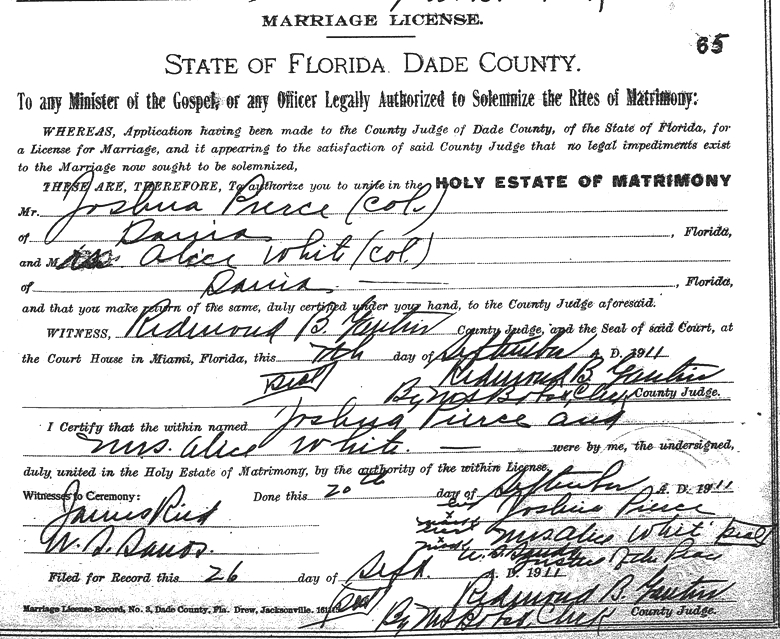 MARRIAGE LICENSE.
65
STATE OF FLORIDA DADE COUNTY.
To any Minister of the Gospel, or any Officer Legally Authorized to Solemnize the Rites of Matrimony:
WHEREAS, Application having been made to the County Judge of Dade County, of the State of Florida, for
a License for Marriage, and it appearing to the satisfaction of said County Judge that no legal impediments exist
to the Marriage now sought to be solemnized,
THESE ARE, THEREFORE, To authorize you to unite in the HOLY ESTATE OF MATRIMONY
Mr. Joshua Pierce (col.)
of Dania, Florida,
and Mrs. Alice White (col)
of Dania, Florida,
and that you make return of the same, duly certified under your hand, to the County Judge aforesaid.
WITNESS, Redmond B. Gautier County Judge, and the Seal of said Court, at
the Court House in Miami, Florida, this day of September A. D. 1911
Seal Redmond B Gautier
By Clerk County Judge.
I Certify that the within named Joshua Pierce and
Mrs. Alice White. were by me, the undersigned,
duly united in the Holy Estate of Matrimony, by the authority of the within License.
Witnesses to Ceremony: Done this 20th day of September A. D. 1911
James Reid Joshua Pierce
x mark Mrs Alice White Seal
W. S. Justice of the Peace
Filed for Record this 26 day of Sept. A. D. 1911
Seal Redmond B. Gautier
Marriage License Record, No. 3, Dade County, Fla. Drew, Jacksonville. By Clerk County Judge.